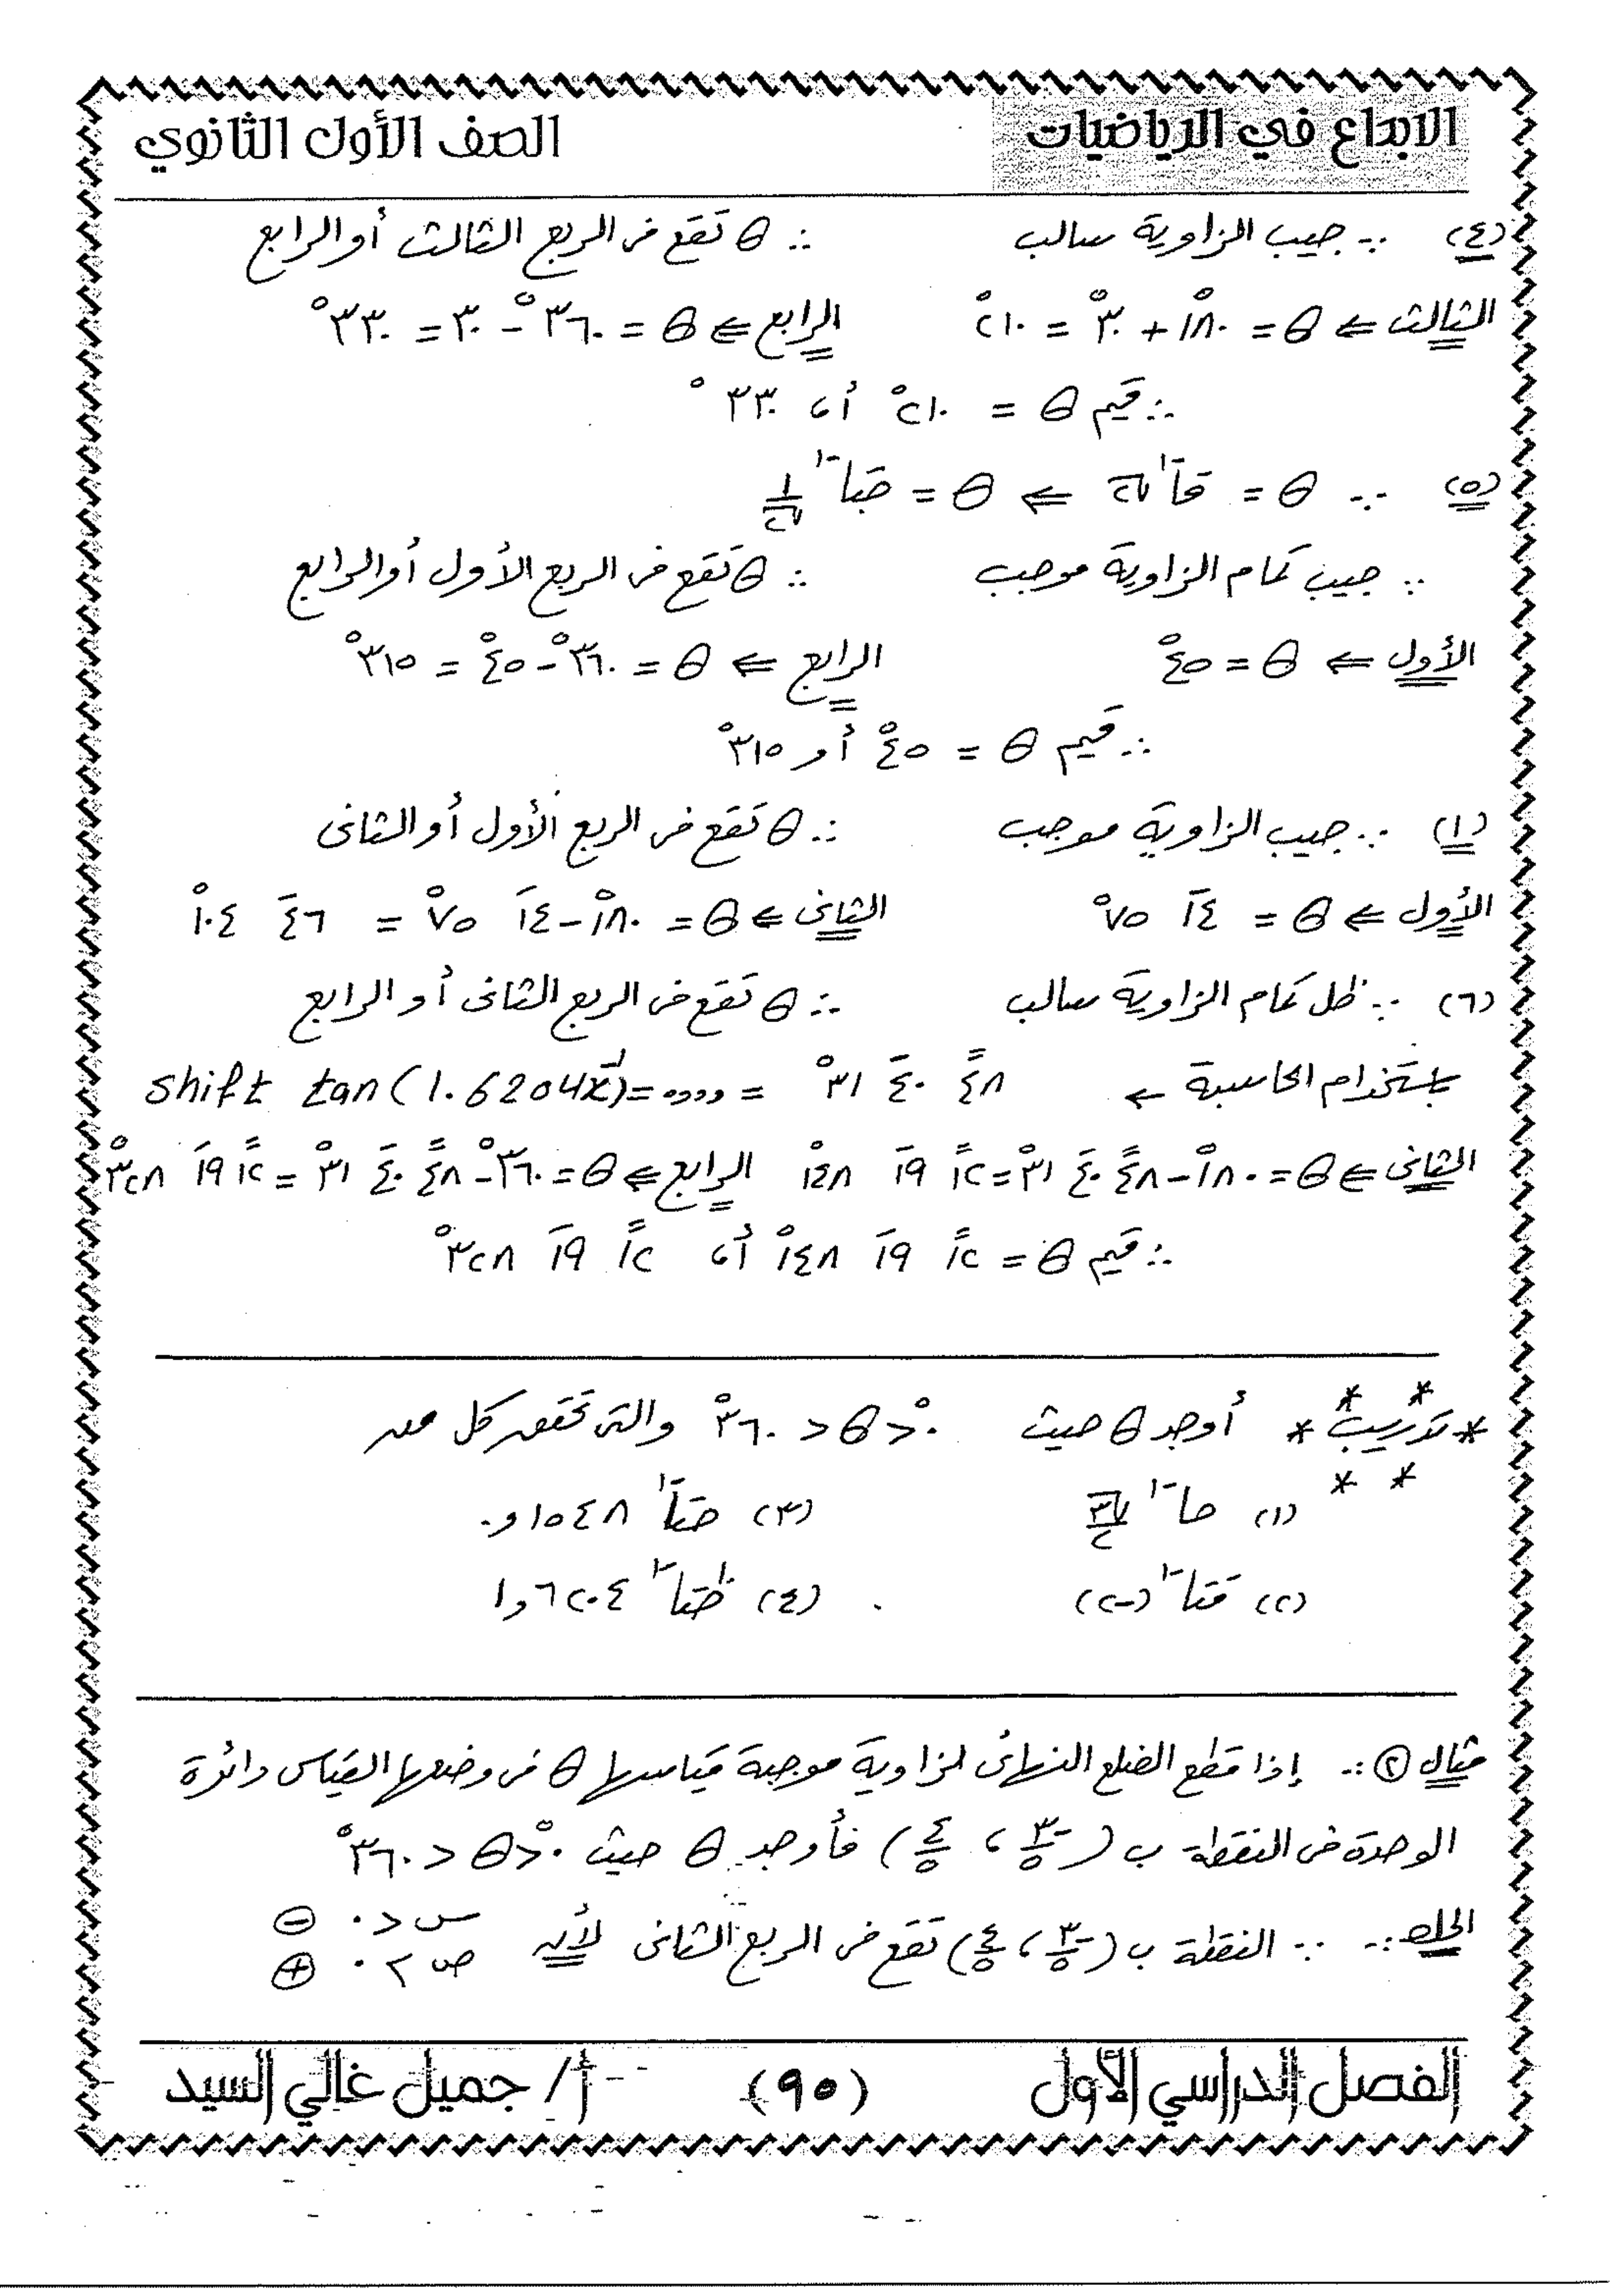 الابداع في الرياضيات الصف الأول الثانوي
(٤) ∵ جيب الزاوية سالب ∴ θ تقع فى الربع الثالث أو الرابع
الثالث ⇐ θ = ١٨٠° + ٣٠° = ٢١٠° الرابع ⇐ θ = ٣٦٠° - ٣٠ = ٣٣٠°
∴ قيم θ = ٢١٠° أ، ٣٣٠°
(٥) ∵ θ = قا⁻¹ √٢ ⇐ θ = جتا⁻¹ ١/√٢
∵ جيب تمام الزاوية موجب ∴ θ تقع فى الربع الأول أو الرابع
الأول ⇐ θ = ٤٥° الرابع ⇐ θ = ٣٦٠° - ٤٥° = ٣١٥°
∴ قيم θ = ٤٥° أو ٣١٥°
(١) ∵ جيب الزاوية موجب ∴ θ تقع فى الربع الأول أو الثانى
الأول ⇐ θ = ١٤َ ٧٥° الثانى ⇐ θ = ١٨٠° - ١٤َ ٧٥° = ٤٦َ ١٠٤°
(٦) ∵ ظل تمام الزاوية سالب ∴ θ تقع فى الربع الثانى أو الرابع
بإستخدام الحاسبة ← shift tan(1.6204x⁻¹)=°,,, = ٤٨ً ٤٠َ ٣١°
الثانى ⇐ θ = ١٨٠° - ٤٨ً ٤٠َ ٣١° = ١٢ً ١٩َ ١٤٨° الرابع ⇐ θ = ٣٦٠° - ٤٨ً ٤٠َ ٣١° = ١٢ً ١٩َ ٣٢٨°
∴ قيم θ = ١٢ً ١٩َ ١٤٨° أ، ١٢ً ١٩َ ٣٢٨°
* تدريب * أوجد θ حيث ٠° < θ < ٣٦٠° والتى تحقق كل من
(١) حا⁻¹ √٣/٢ (٣) جتا⁻¹ ٠,١٥٤٨
(٢) قتا⁻¹ (-٢) (٤) ظتا⁻¹ ١,٦٢٠٤
مثال ②:- إذا قطع الضلع النهائى لزاوية موجبة قياسها θ فى وضعها القياسى دائرة
الوحدة فى النقطة ب (-٣/٥ ، ٤/٥) فأوجد θ حيث ٠° < θ < ٣٦٠°
الحل:- ∵ النقطة ب (-٣/٥ ، ٤/٥) تقع فى الربع الثانى لأن س < ٠ ⊖
ص > ٠ ⊕
الفصل الدراسي الأول (٩٥) أ/ جميل غالي السيد